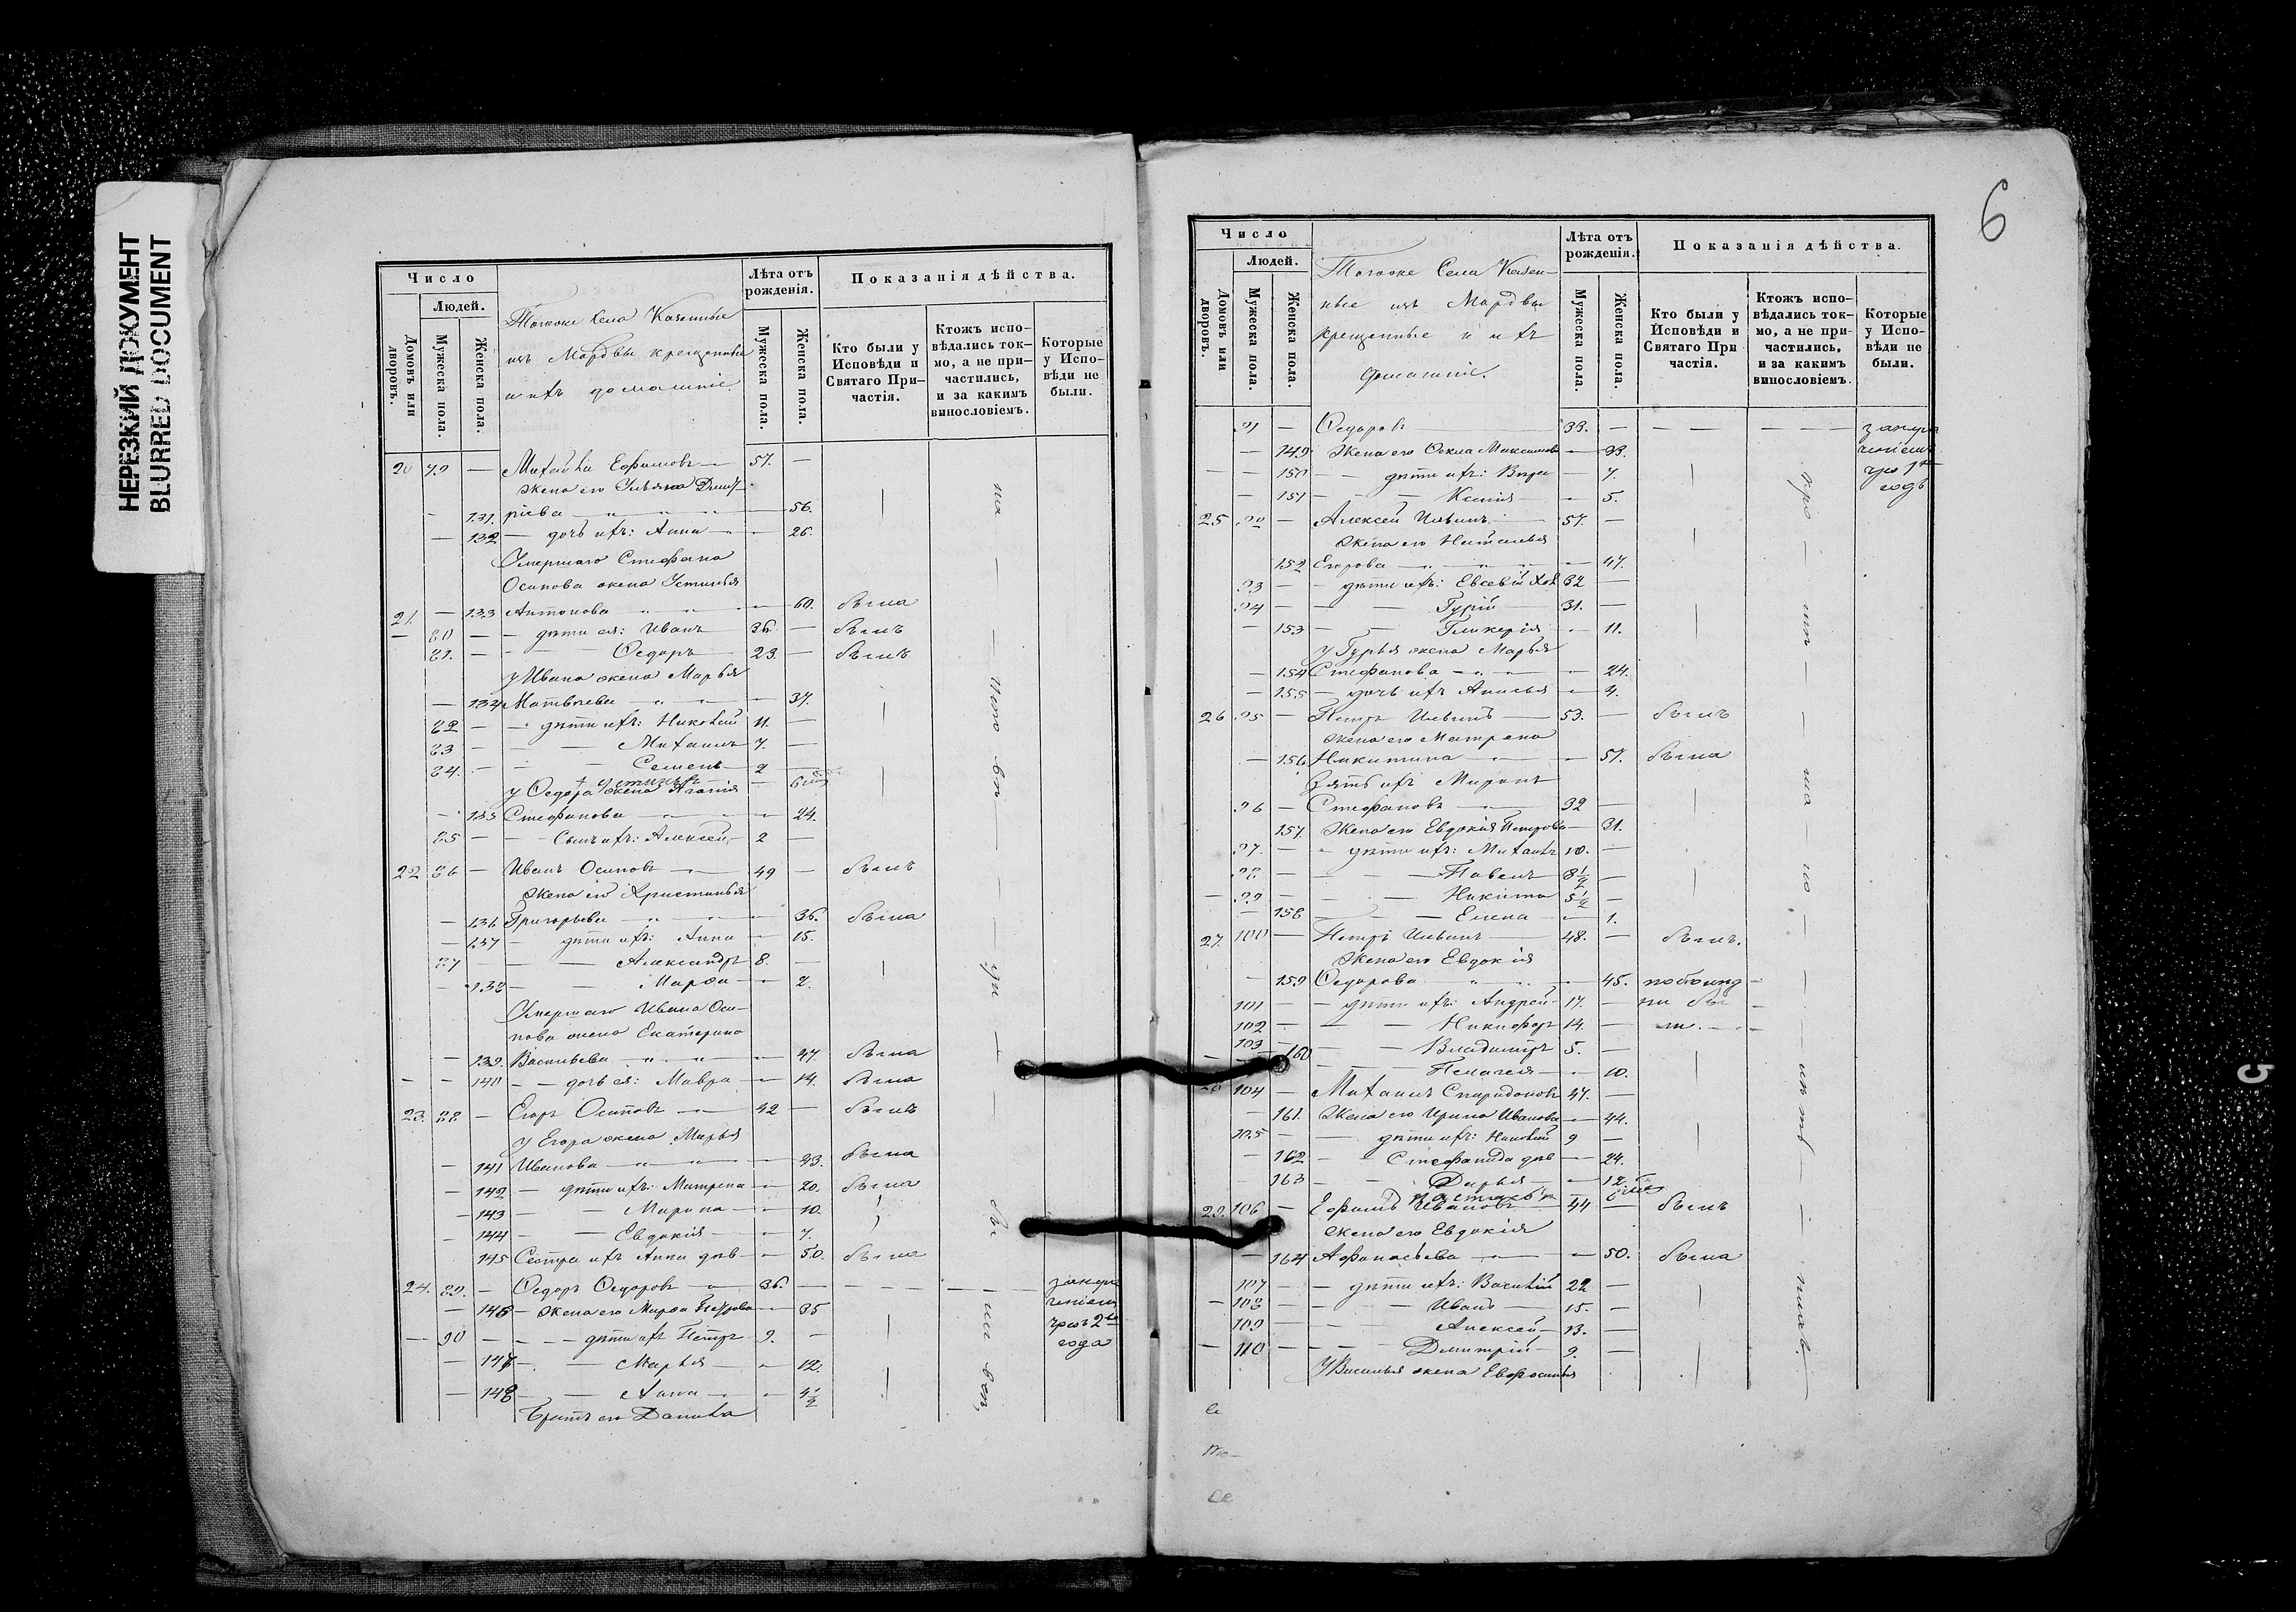 НЕРЕЗКИЙ ДОКУМЕНТ
BLURRED DOCUMENT
Число
Людей.
Домовъ или дворовъ.
Мужеска пола.
Женска пола.
Тогоже Села Казенные
изъ Мордвы крещенные
и ихъ домашніе
Лѣта отъ рожденія.
Мужеска пола.
Женска пола.
Показанія дѣйства.
Кто были у Исповѣди и Святаго Причастія.
Ктожъ исповѣдались токмо, а не причастились, и за какимъ винословіемъ.
Которые у Исповѣди не были.
20 79 — Михайла Ефимовъ 57. —
Жена его Ульяна Дмит-
— 131. ріева — 56.
— 132 — дочь ихъ: Анна — 26.
Умершаго Стефана
Осипова жена Устинья
21. — 133 Антонова — 60. была
— 80 — дѣти ея: Иванъ 36. — былъ
81. — Ѳедоръ 23. — былъ
у Ивана жена Марья
— 134 Матвѣева — 37.
82 — дѣти ихъ: Николай 11. —
83 — Михаилъ 7. —
84. — Семенъ 2 —
у Ѳедора жена Агафія
— 135 Стефанова — 24.
85 — Сынъ ихъ: Алексей 2 —
22 86 — Иванъ Осиповъ 49 — былъ
Жена его Христинья
— 136 Григорьева — 36. была
— 137 — дѣти ихъ: Анна — 15.
87 — Александръ 8. —
— 138 — Марѳа — 2.
Умершаго Ивана Оси-
пова жена Екатерина
— 139. Васильева — 47. была
— — 140 — дочь ея: Мавра — 14. была
23. 88 — Егоръ Осиповъ 42 — былъ
У Егора жена Марья
— 141 Иванова — 43. была
— 142 — дѣти ихъ: Матрена — 20. была
— 143 — Марина — 10.
— 144 — Евдокія — 7.
145 Сестра ихъ Анна дѣв — 50. была
24. 89. — Ѳедоръ Ѳедоровъ 36. —
— 146 — Жена его Марѳа Петрова — 35
чрезъ 2
года
— 90 — дѣти ихъ Петръ 9. —
— 147 — Марья — 12.
— 148 — Анна — 4½
Братъ его Данила
6
Число
Людей.
Домовъ или дворовъ.
Мужеска пола.
Женска пола.
Тогоже Села Казен-
ные изъ Мордвы
крещенные и ихъ
домашніе.
Лѣта отъ рожденія.
Мужеска пола.
Женска пола.
Показанія дѣйства.
Кто были у Исповѣди и Святаго Причастія.
Ктожъ исповѣдались токмо, а не причастились, и за какимъ винословіемъ.
Которые у Исповѣди не были.
91 — Ѳедоровъ 33. —
— 149. Жена его Ѳекла Максимова — 33.
— — 150 — дѣти ихъ: Вѣра — 7.
— 151 — Ксенія — 5.
годъ
25 92 — Алексей Ильинъ 57. —
Жена его Наталья
152 Егорова — 47.
93 — дѣти ихъ: Евсевій 32 —
94 — Гурій 31. —
— 153 — Гликерія — 11.
У Гурья жена Марья
— 154 Стефанова — 24.
— 155 — дочь ихъ Анисья — 4.
26 95 — Петръ Ильинъ 53. — былъ
Жена его Матрена
— 156 Никитина — 57. была
Зять ихъ Миронъ
96 — Стефановъ 32 —
157. Жена его Евдокія Петрова — 31.
97. — дѣти ихъ: Михаилъ 10. —
98 — Павелъ 8½ —
— 99 — Никита 5½ —
— 158 — Елена — 1.
27. 100 — Петръ Ильинъ 48. — былъ.
Жена его Евдокія
— 159 Ѳедорова — 45.
101 — дѣти ихъ: Андрей 17. —
102 — Никифоръ 14. —
103 — Владиміръ 5. —
160 — Пелагея — 10.
104 — Михаилъ Спиридоновъ 47. —
— 161. Жена его Ирина Иванова — 44.
105 — дѣти ихъ: Николай 9 —
— 162 — Стефанида дѣв — 24.
163 — Дарья — 12.
29. 106 — Ефимъ Ивановъ 44 — былъ
Жена его Евдокія
— 164 Афанасьева — 50. была
107 — дѣти ихъ: Василій 22 —
— 108 — Иванъ 15. —
109 — Алексей 13. —
— 110 — Дмитрій 9. —
У Василья жена Евфросинья
5